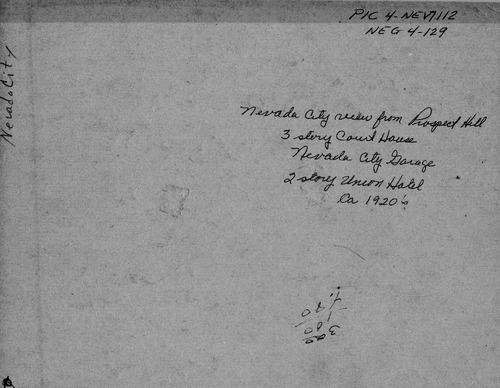 PIC 4-NEV/112
NEG 4-129
Nevada City
Nevada City view from Prospect Hill
3 story Court House
Nevada City Garage
2 story Union Hotel
Ca 1920's